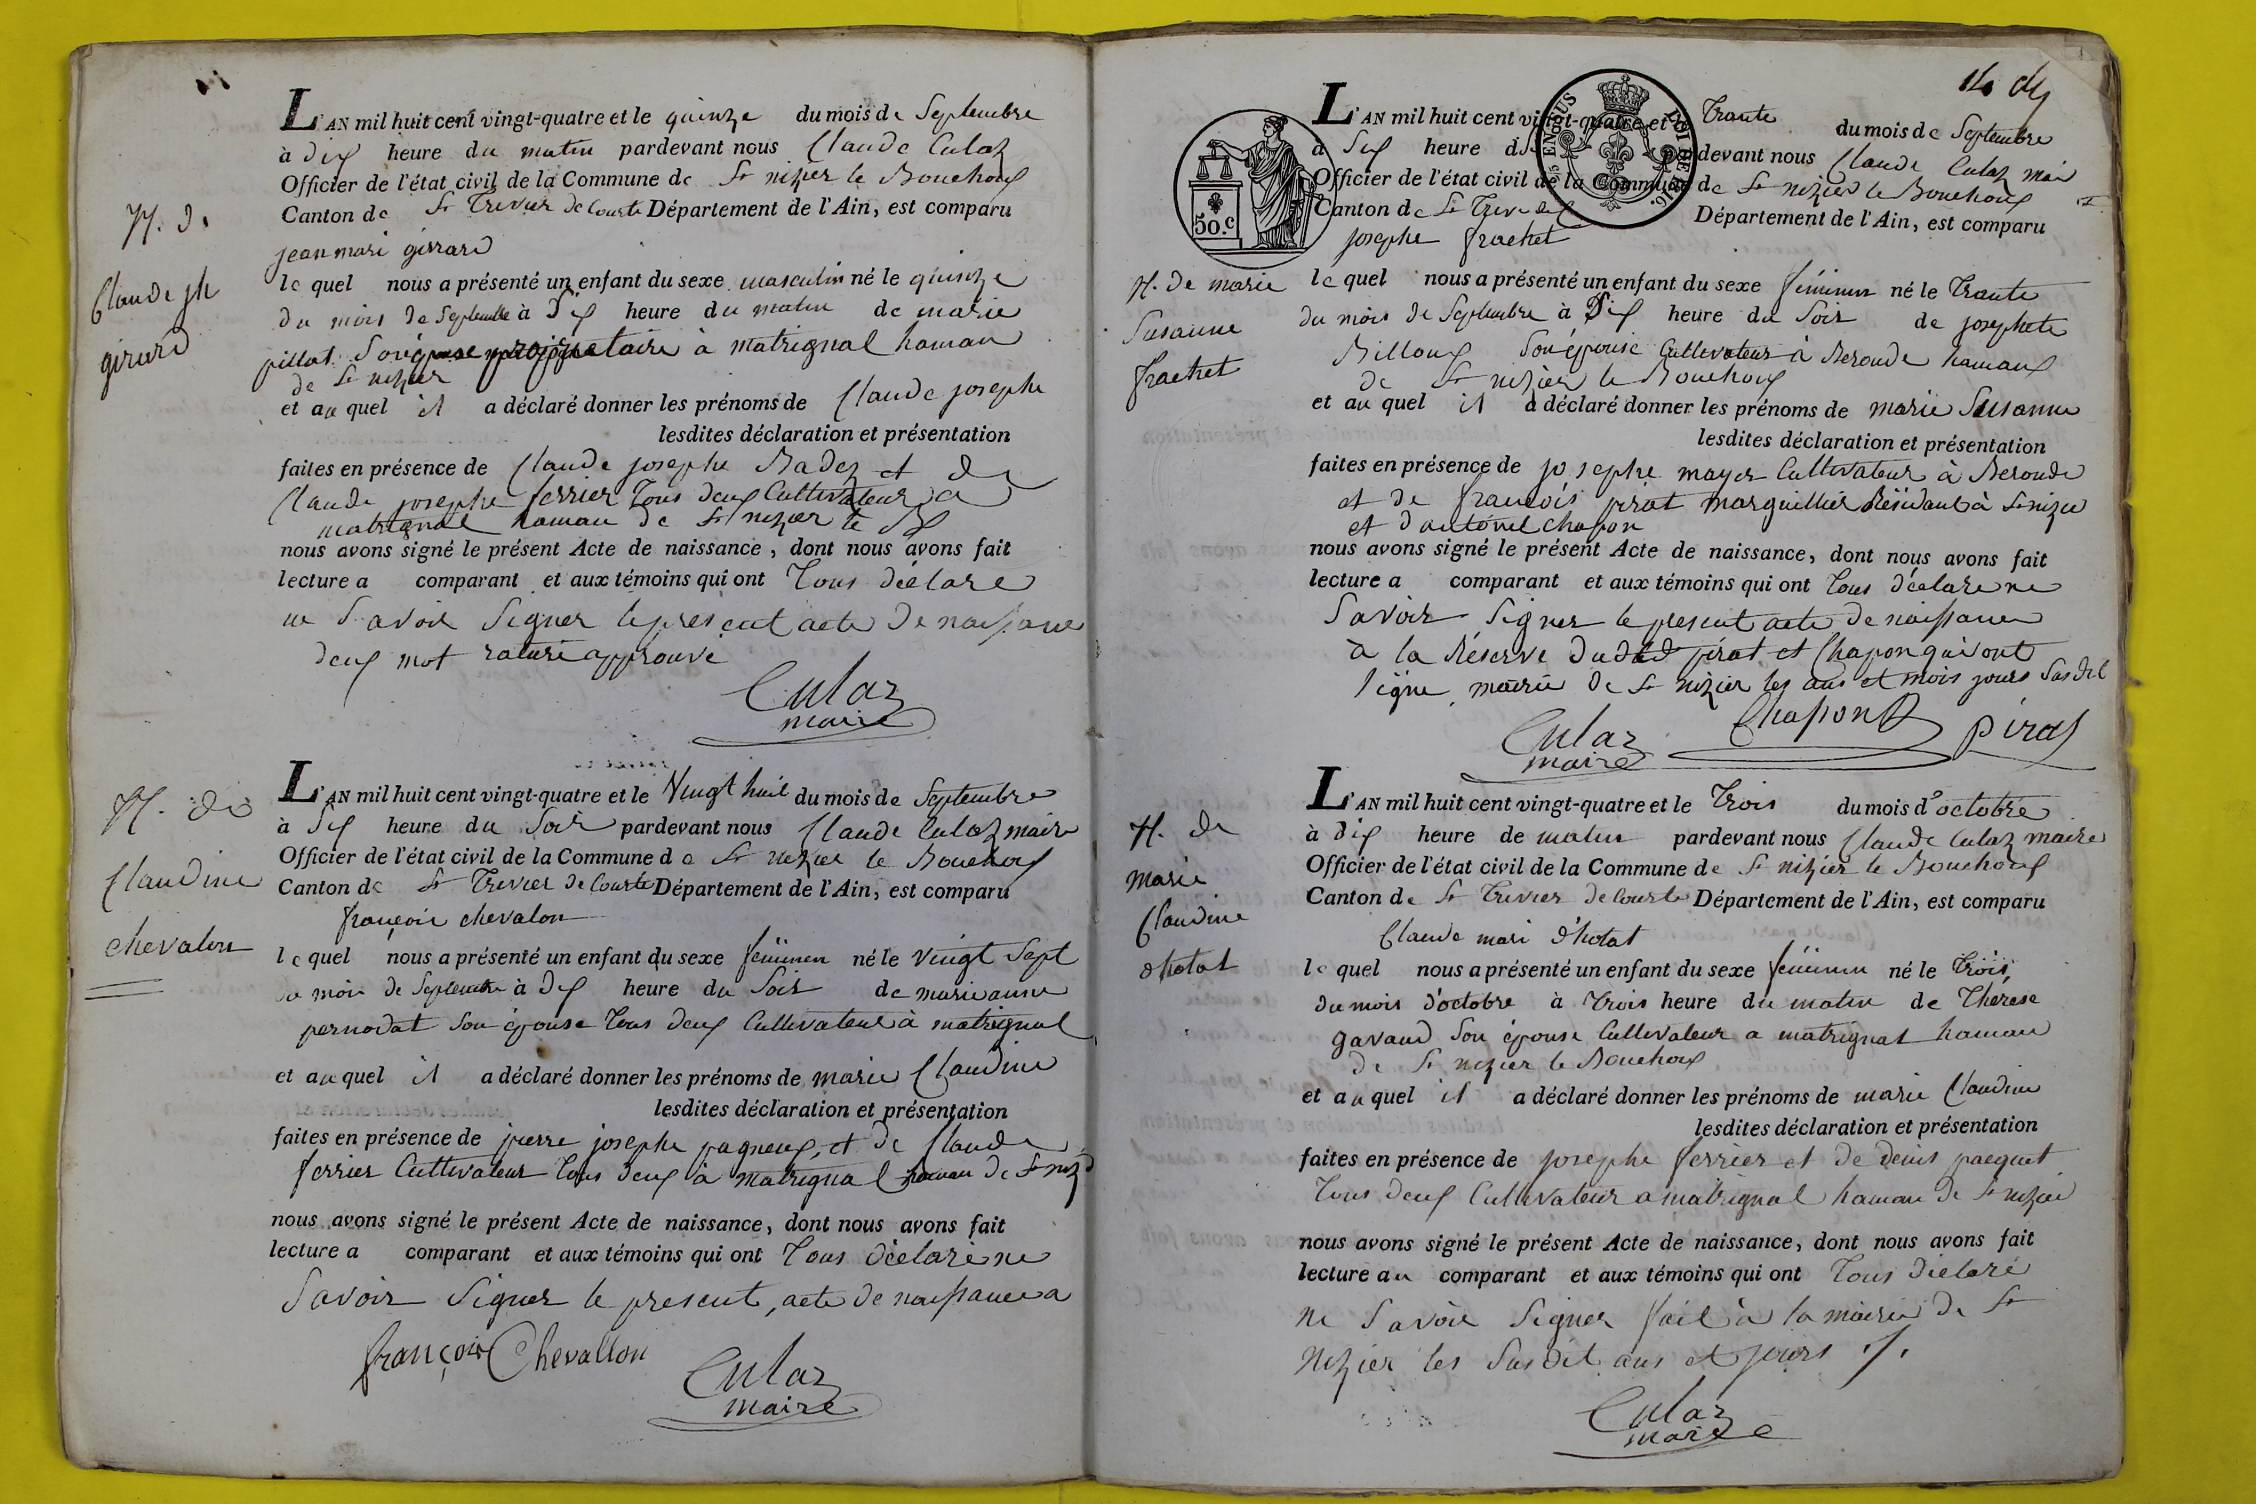 N. de
Claude jh
girard
L'AN mil huit cent vingt-quatre et le quinze du mois de Septembre
à dix heure du matin pardevant nous Claude Culaz
Officier de l'état civil de la Commune de St nizier le Bouchoux
Canton de St Trivier de Courte Département de l'Ain, est comparu
jean mari girrard
le quel nous a présenté un enfant du sexe masculin né le quinze
du mois de Septembre à Dix heure du matin de marie
pillat Son épouse à matrignal hamau
de St nizier
et au quel il a déclaré donner les prénoms de Claude josephe
lesdites déclaration et présentation
faites en présence de Claude josephe Badez et de
Claude josephe ferrier Tous deux Cultivateur a
matrignal hamau de St nizier le Bx
nous avons signé le présent Acte de naissance, dont nous avons fait
lecture a comparant et aux témoins qui ont Tous déclare
ne Savoir Signer le present acte de naissance
deux mot raturé approuvé
Culaz
maire
N. de
Claudine
chevalon
L'AN mil huit cent vingt-quatre et le Vingt huit du mois de Septembre
à Six heure du Soir pardevant nous Claude Culaz maire
Officier de l'état civil de la Commune de St nizier le Bouchoux
Canton de St Trivier de Courte Département de l'Ain, est comparu
françois chevalon
le quel nous a présenté un enfant du sexe féminen né le Vingt Sept
du mois de Septembre à Dix heure du Soir de marie anne
pernodat Son épouse Tous deux Cultivateur à matrignal
et au quel il a déclaré donner les prénoms de marie Claudine
lesdites déclaration et présentation
faites en présence de pierre josephe pagneux, et de Claude
ferrier Cultivateur Tous deux à matrignal hamau de St niz
nous avons signé le présent Acte de naissance, dont nous avons fait
lecture a comparant et aux témoins qui ont Tous déclaré ne
Savoir Signer le present, acte de naissance a
françois Chevallon
Culaz
maire
14
50.c
L'AN mil huit cent vingt-quatre et le Trante du mois de Septembre
à Six heure du pardevant nous Claude Culaz mair
Officier de l'état civil de la Commune de St nizier le Bouchoux
Canton de St Trivi de C Département de l'Ain, est comparu
josephe frachet
N. de marie
Susanne
frachet
le quel nous a présenté un enfant du sexe féminen né le Trante
du mois de Septembre à Dix heure du Soir de josephete
Billoux Son épouse Cultivateur à Beroude hamaux
de St nizier le Bouchoux
et au quel il a déclaré donner les prénoms de marie Susanne
lesdites déclaration et présentation
faites en présence de josephe mayer Cultivateur à Beroude
et de françois pirat marguillier Résidant à St nizier
et d'antoine Chapon
nous avons signé le présent Acte de naissance, dont nous avons fait
lecture a comparant et aux témoins qui ont Tous déclare ne
Savoir Signer le present acte de naissance
à la Réserve dudit pirat et Chapon qui ont
Signe mairie de St nizier les ans et mois jours Susdit
Culaz
maire
Chapon
Pirat
N. de
marie
Claudine
chotat
L'AN mil huit cent vingt-quatre et le Trois du mois d'octobre
à dix heure de matin pardevant nous Claude Culaz maire
Officier de l'état civil de la Commune de St nizier le Bouchoux
Canton de St Trivier de Courte Département de l'Ain, est comparu
Claude mari chotat
le quel nous a présenté un enfant du sexe féminen né le Trois
du mois d'octobre à Trois heure du matin de Thérese
gavaud Son épouse Cultivateur a matrignat hamau
de St nizier le Bouchoux
et au quel il a déclaré donner les prénoms de marie Claudine
lesdites déclaration et présentation
faites en présence de josephe ferrier et de denis pacquet
Tous deux Cultivateur a matrignal hamau de St nizier
nous avons signé le présent Acte de naissance, dont nous avons fait
lecture au comparant et aux témoins qui ont Tous déclaré
ne Savoir Signer fait à la mairie de St
Nizier les Susdit ans et jours
Culaz
maire